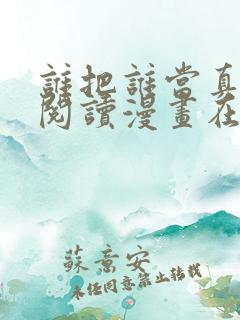 誰把誰當真
閱讀漫畫在
蘇意安
未經同意禁止轉載